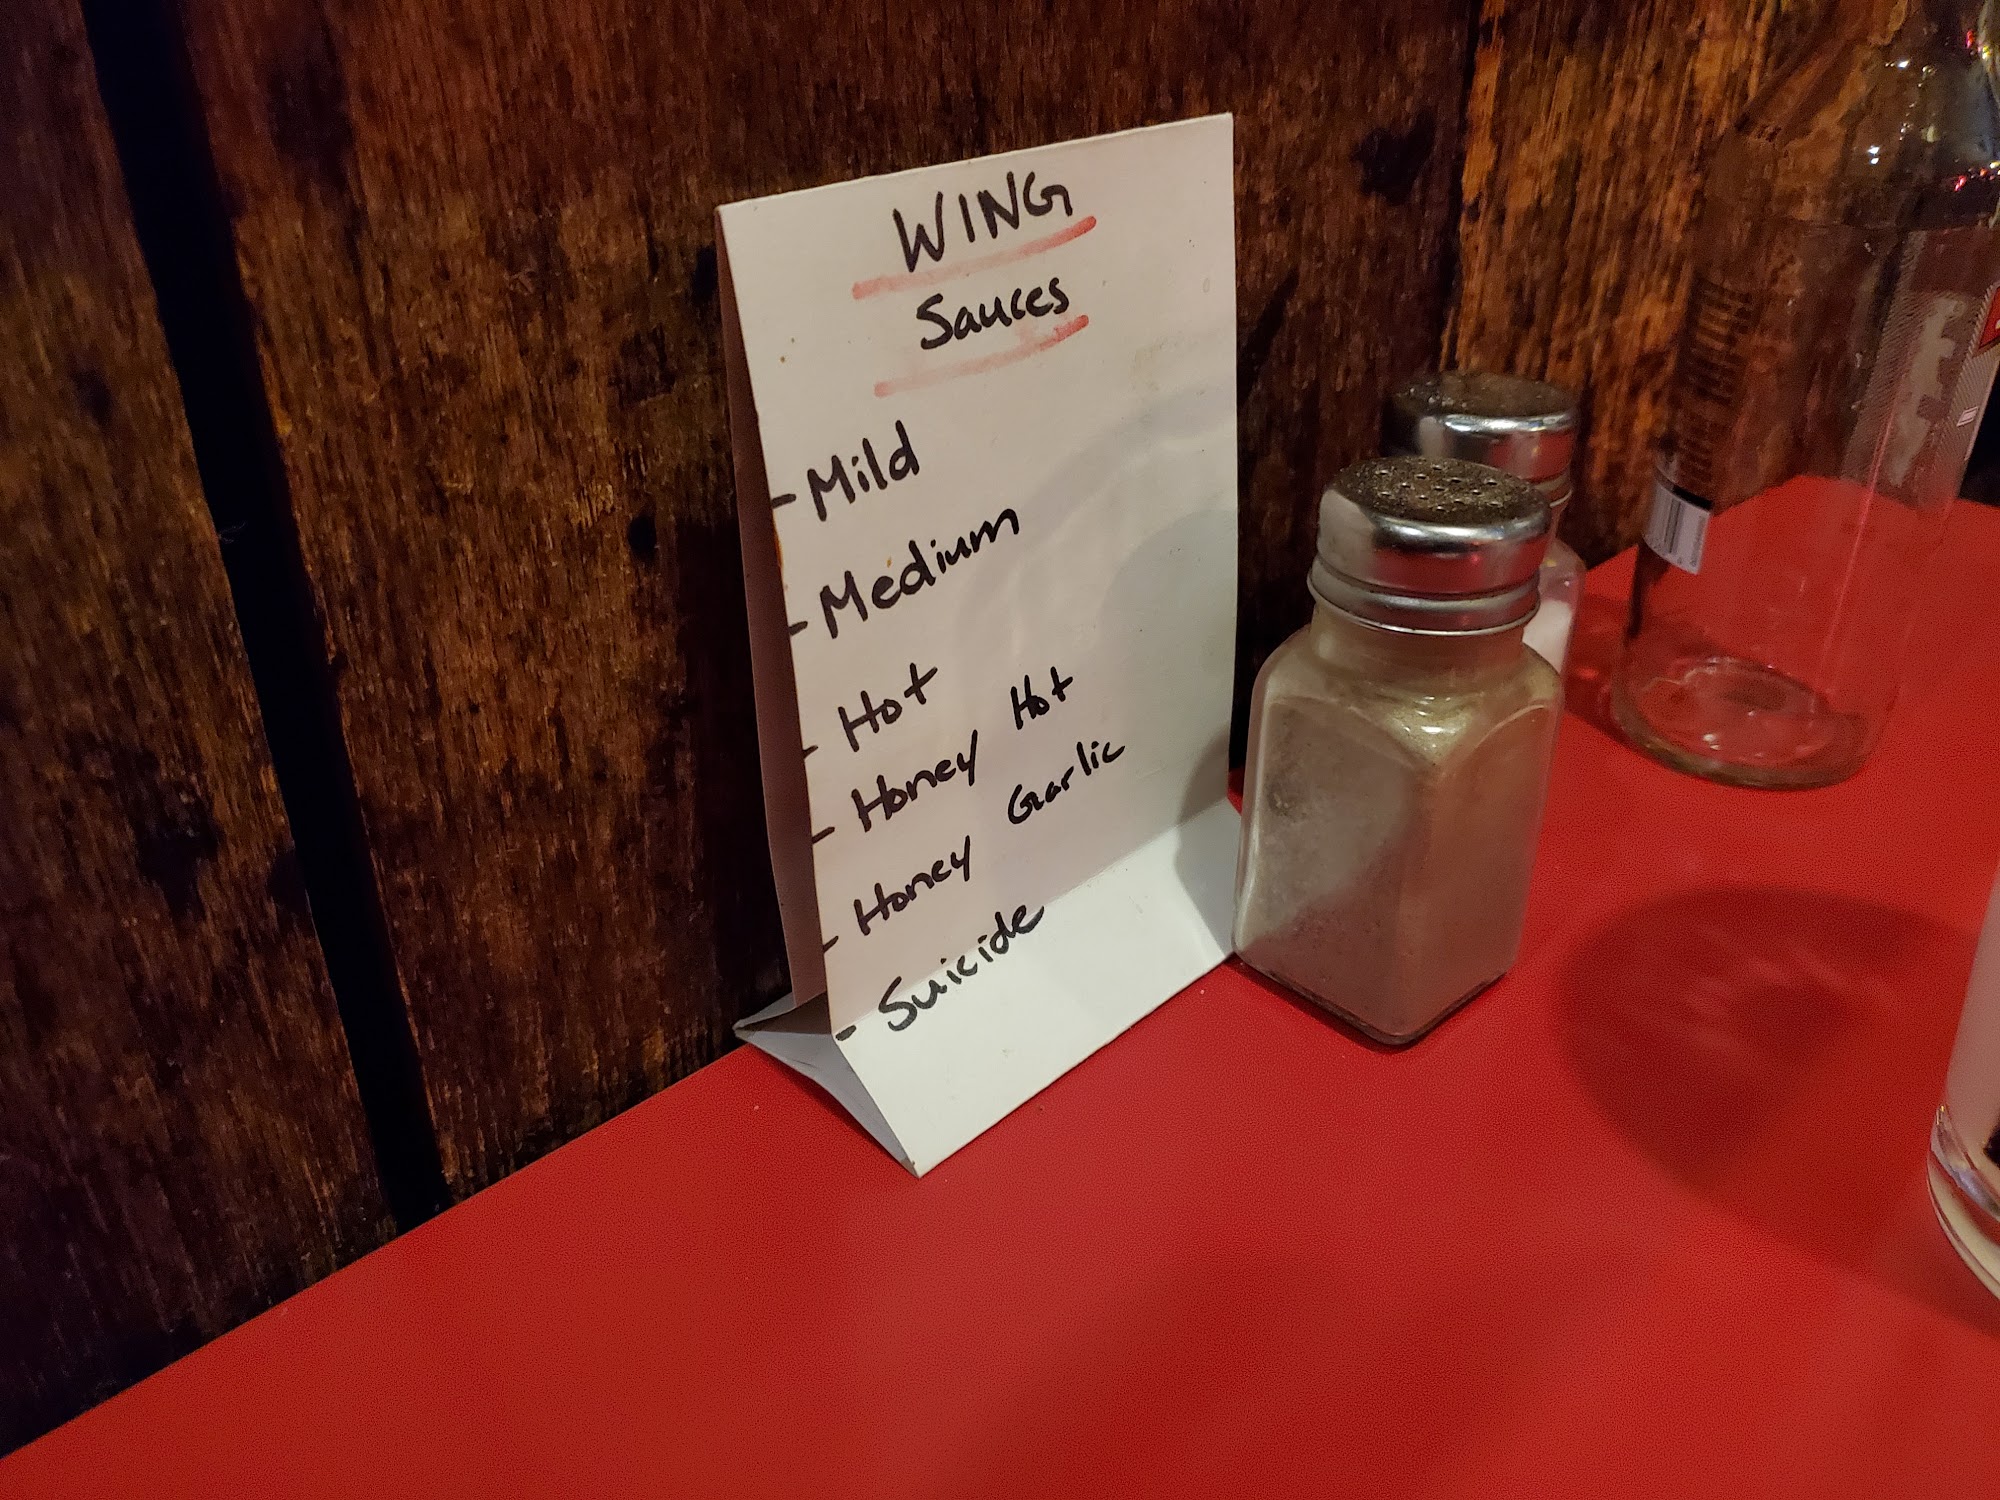 WING
Sauces
- Mild
- Medium
- Hot
- Honey Hot
- Honey Garlic
- Suicide